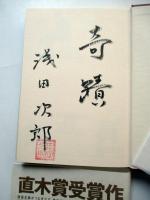 奇蹟
浅田次郎
直木賞受賞作